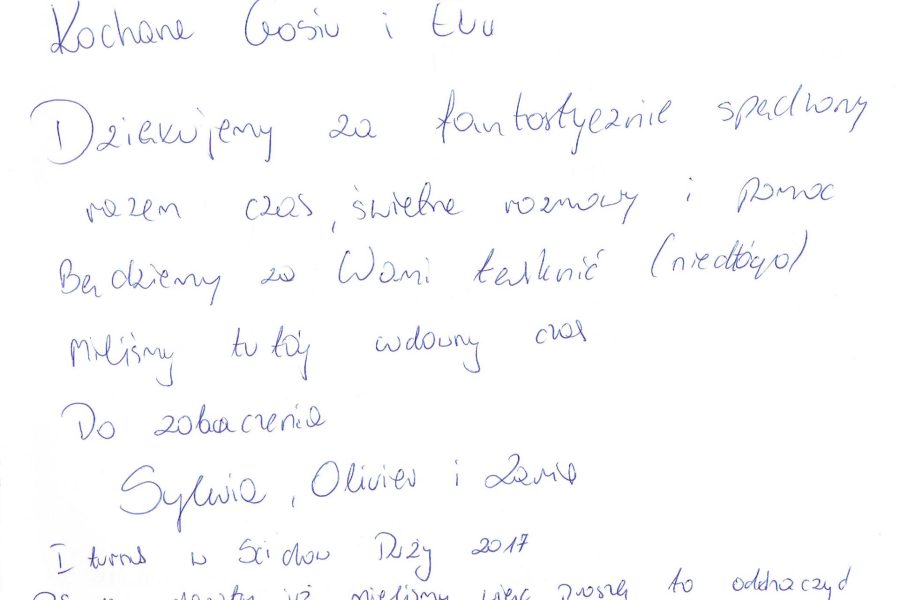 Kochane Gosiu i Ewu
Dziękujemy za fantastycznie spędzony
razem czas, świetne rozmowy i pomoc
Będziemy za Wami tesknić (niedłógo)
Mieliśmy tu tój cudowny czas
Do zobaczenia
Sylwia, Olivier i Zania
I turnus w Ścichów Duży 2017
już mieliśmy więc proszę to odchaczyć